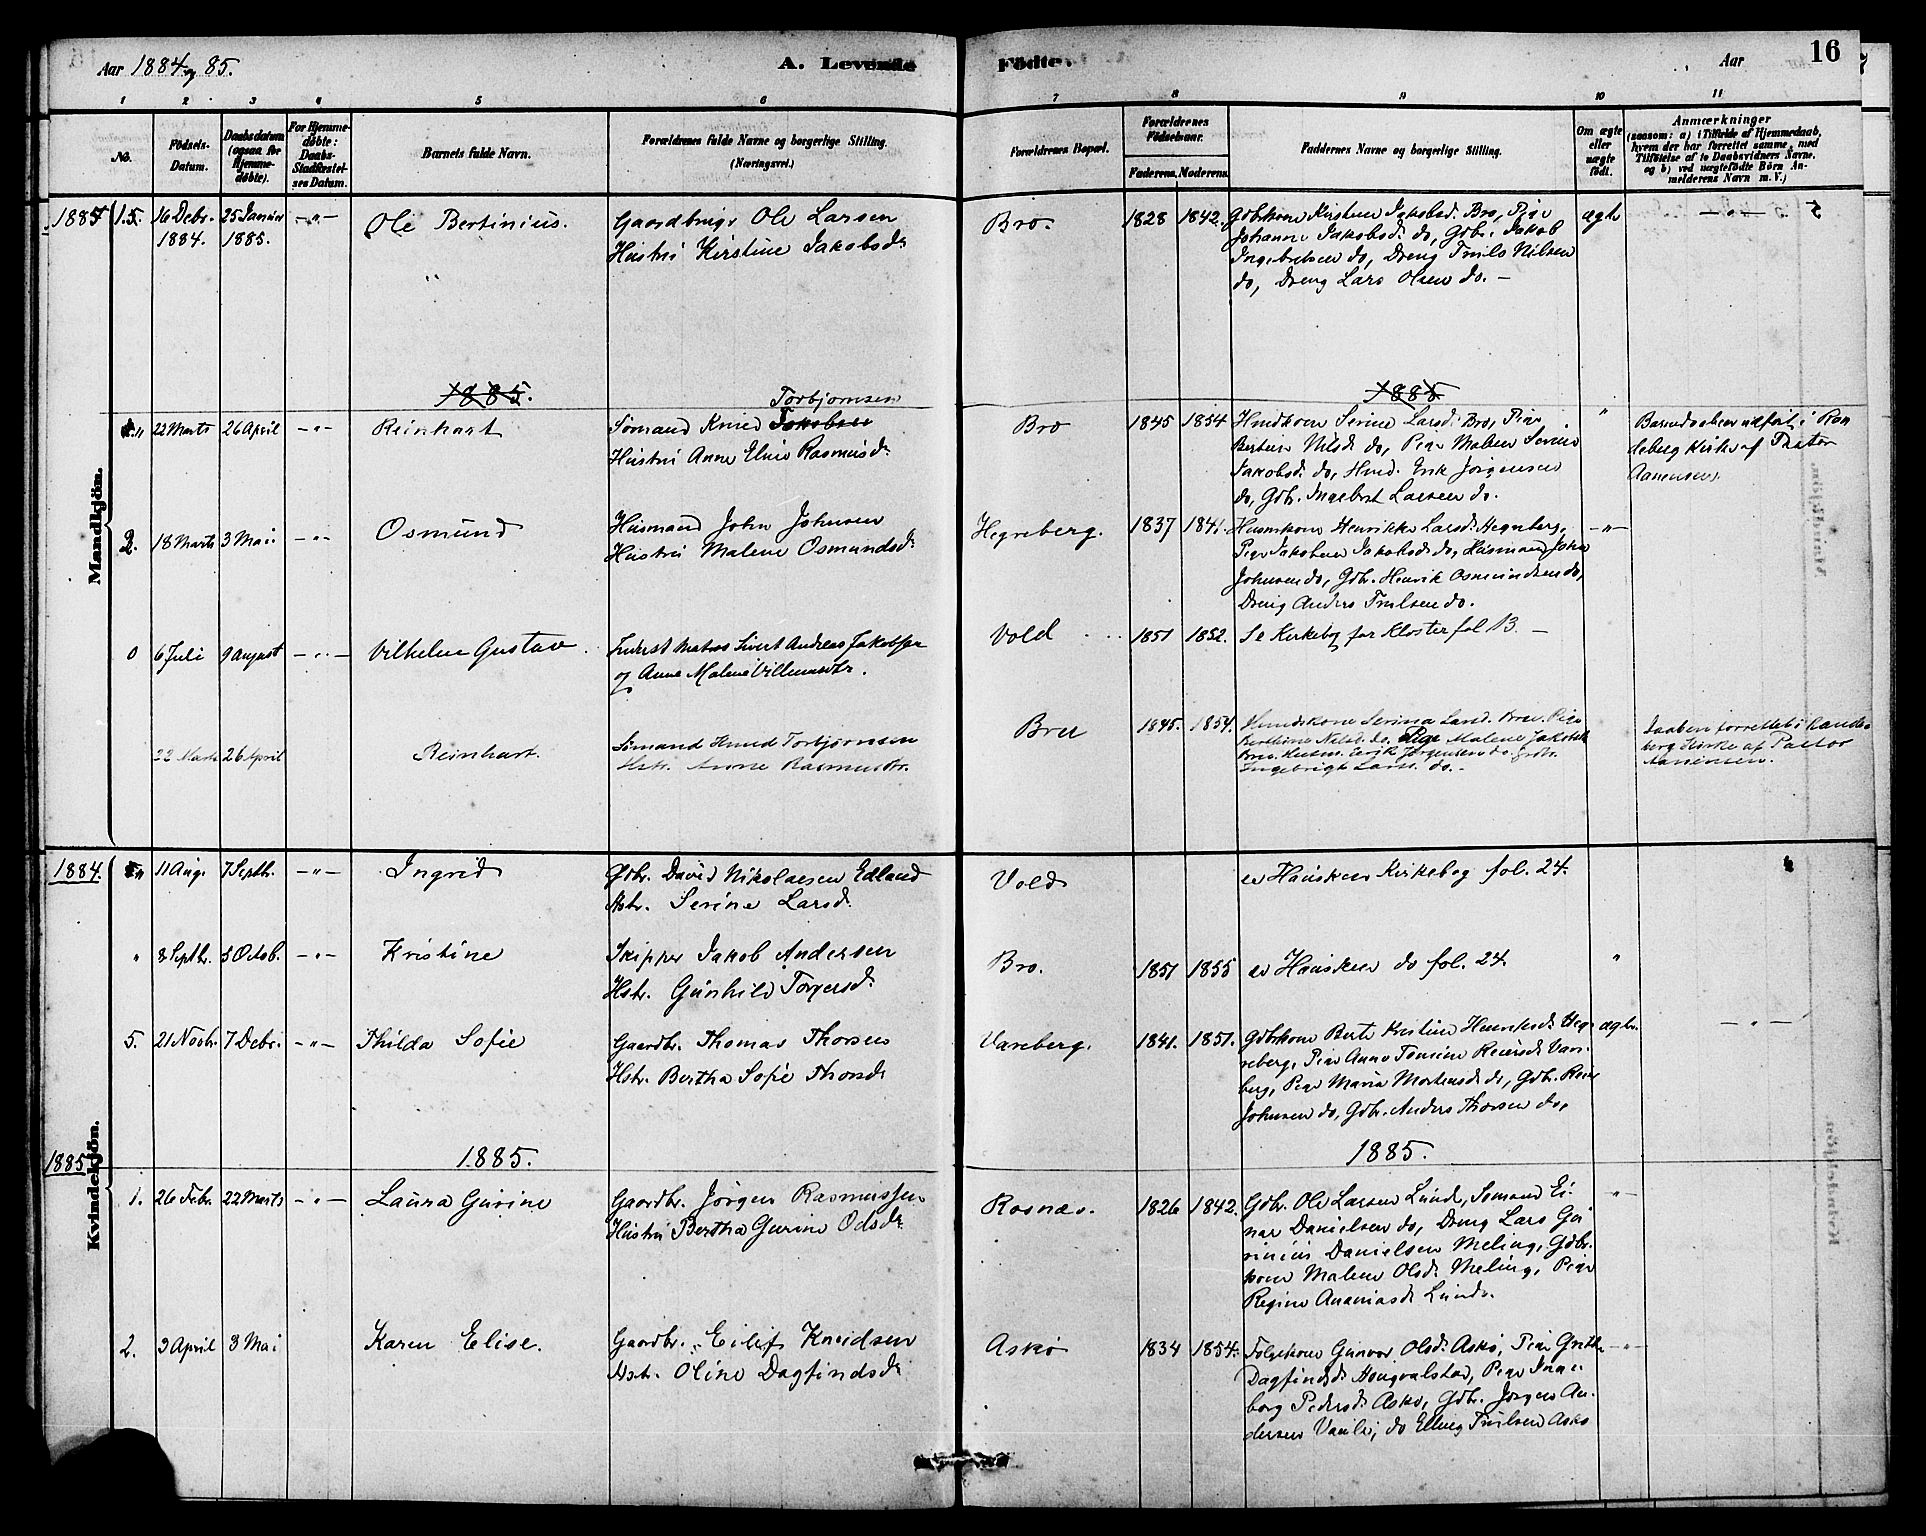 Aar 1884 og 85.
A. Levende
Fødte.
Aar
16
1 2 3 4 5 6 7 8 9 10 11
No.
Fødsels-Datum.
Daabsdatum (ogsaa for Hjemme-døbte).
For Hjemme-døbte: Daabs-Stadfæstel-ses Datum.
Barnets fulde Navn.
Forældrenes fulde Navne og borgerlige Stilling. (Næringsvei.)
Forældrenes Bopæl.
Forældrenes Fødselsaar.
Faderens. Moderens.
Faddernes Navne og borgerlige Stilling.
Om ægte eller uægte født.
Anmærkninger (saasom: a) i Tilfælde af Hjemmedaab, hvem der har forrettet samme, med Tilføielse af to Daabsvidners Navne, og b) ved uægtefødte Børn Anmelderens Navn m. V.)
Mandkjön.
15. 16 Debr. 1884. 25 Januar 1885. -"- Ole Bertinius.
Gaardbrugr Ole Larsen
Hustru Kirstine Jakobsdr
Bro. 1828 1842.
Gdbrkone Kirstine Jakobsd. Bro, Pige
Johanne Jakobsd. do, Gdbr. Jakob
Ingebretsen do, Dreng Truls Nilsen
do, Dreng Lars Olsen do. -
ægte -"-
1885. 1885
" 22 Marts 26 April -"- Reinhart
Torbjørnsen
Sømand Knud Jakobsen
Hustru Anne Elise Rasmusdr
Bro 1845 1854
Husmdkone Serine Larsd. Bro, Pige
Bertine Nilsd. do, Pige Malene Serine
Jakobsd. do, Husmd. Erik Jørgensen
do, Gdbr. Ingebret Larsen do.
"
Barnedaaben udført i Ran
deberg Kirke af Pastor
Aanensen.
2. 18 Marts 3 Mai -"- Osmund
Husmand John Johnsen
Hustru Malene Osmundsdr
Hegreberg. 1837 1841.
Husmkone Henrikke Larsd. Hegreberg,
Pige Jakobine Jakobsd. do, Husmand John
Johnsen do, Gdbr. Henrik Osmundsen do,
Dreng Anders Trulsen do.
-"-
0 6 Juli 9 August -"- Vilhelm Gustav.
Inderst Matros Sivert Andreas Jakobsen
og Anne Malene Villumsdtr.
Vold 1851 1852. Se Kirkebog for Kloster fol 13. -
22 Marts 26 April Reinhart.
Sømand Knud Torbjørnsen
Hstr. Anne Rasmusdtr.
Bru 1845. 1854.
Husmdskone Serina Larsd. Bru. Pige
Berthine Nelsd. do. Pige Malene Jakobsd.
Bru. Husm. Erik Jørgensen do. Grdbr.
Ingebrigt Lars. do. -
Daaben forrettet i Rande-
berg Kirke af Pastor
Aanensen.
Kvindekjön.
1884. " 11 Aug. 7 Septbr. -"- Ingrid
Gdbr. David Nikolaisen Edland
Hstr. Serine Larsd.
Vold
se Hausken Kirkebog fol. 24.
" 8 Septbr. 5 Octob. -"- Kristine
Skipper Jakob Andersen
Hstr. Gunhild Torgersdr
Bro. 1851 1855 se Hausken do fol. 24. "
5. 21 Novbr. 7 Debr. -"- Thilda Sofie
Gaardbr. Thomas Thorsen
Hstr. Bertha Sofie Thorsdr
Vareberg. 1841. 1851.
Gdbrkone Berte Kristine Henriksd. Heg-
reberg, Pige Anne Tomine Reiersd. Vare-
berg, Pige Maria Mortensd. do, Gdbr. Reier
Johnsen do, Gdbr. Anders Thorsen do,
ægte. -"-
1885 1885. 1885.
1. 26 Febr. 22 Marts -"- Laura Gurine
Gaardbr. Jørgen Rasmussen
Hustru Bertha Gurine Odsdr
Rosnæs. 1826 1842.
Gdbr. Ole Larsen Lunde, Sømand Ei-
nar Danielsen do, Dreng Lars Gu
rinius Danielsen Meling, Gdbr.
kone Malene Olsd. Meling, Pige
Regine Ananiasd. Lunde.
"-
2. 3 April 3 Mai Karen Elise.
Gaardbr. Eilef Knudsen
Hstr. Oline Dagfindsdr
Askø 1834 1854.
Følgekone Gunvor Olsd. Askø, Pige Grethe
Dagfindsd. Hougvalstad, Pige Inge-
borg Pedersd. Askø, Gdbr. Jørgen An-
dersen do Elling Trulsen Askø
-"-